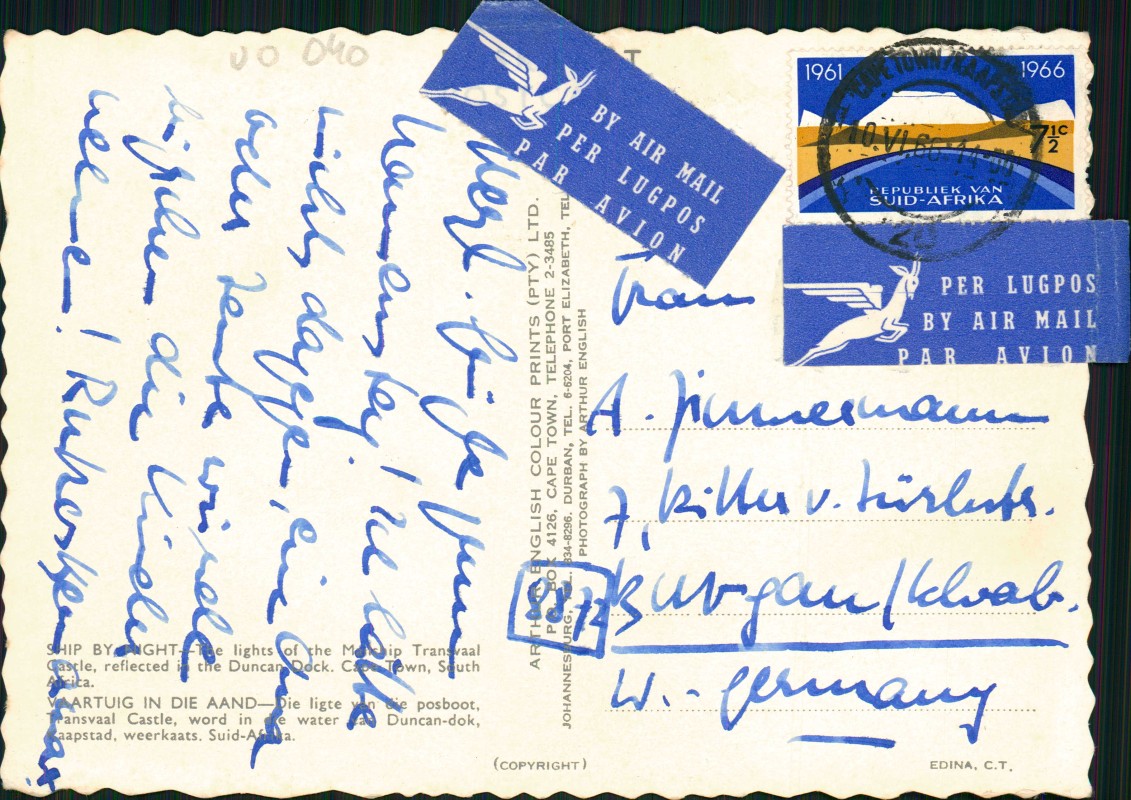 1961
1966
7½c
REPUBLIEK VAN
SUID-AFRIKA
CAPE TOWN/KAAPSTAD
10.VI.66
BY AIR MAIL
PER LUGPOS
PAR AVION
PER LUGPOS
BY AIR MAIL
PAR AVION
Herzl. Grüße zum
Namenstag! Ich hätte
nichts dagegen, eine Oma
oder Tante würde
bißchen die Kinder
Frau
A. Zimmermann
7, Ritter v.
8872 Burgau/Schwab.
W.-Germany
ARTHUR ENGLISH COLOUR PRINTS (PTY) LTD.
P.O. BOX 4126, CAPE TOWN, TELEPHONE 2-3485
JOHANNESBURG, TEL. 834-8296. DURBAN, TEL. 6-6204, PORT ELIZABETH, TEL
PHOTOGRAPH BY ARTHUR ENGLISH
SHIP BY NIGHT—The lights of the Mailship Transvaal
Castle, reflected in the Duncan Dock. Cape Town, South
Africa.
VAARTUIG IN DIE AAND—Die ligte van die posboot,
Transvaal Castle, word in die water van Duncan-dok,
Kaapstad, weerkaats. Suid-Afrika.
(COPYRIGHT)
EDINA, C.T.